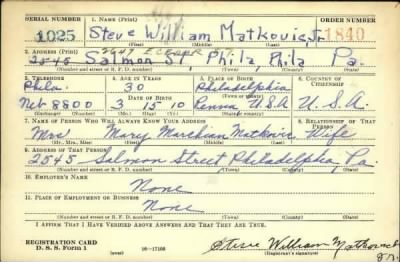 SERIAL NUMBER 1. NAME (Print) ORDER NUMBER
1025 Steve William Matkovic, Jr. 1840
(First) (Middle) (Last)
2. ADDRESS (Print) 2647
2545 Salmon St, Phila, Phila Pa.
(Number and street or R. F. D. number) (Town) (County) (State)
3. TELEPHONE 4. AGE IN YEARS 5. PLACE OF BIRTH 6. COUNTRY OF CITIZENSHIP
Phila. 30 Philadelphia
DATE OF BIRTH
Neb 8800 3 15 10 Penna U.S.A U.S.A.
(Exchange) (Number) (Mo.) (Day) (Yr.) (State or country)
7. NAME OF PERSON WHO WILL ALWAYS KNOW YOUR ADDRESS 8. RELATIONSHIP OF THAT PERSON
Mrs Mary Matkovic Wife
(Mr., Mrs., Miss) (First) (Middle) (Last)
9. ADDRESS OF THAT PERSON
2545 Salmon Street Philadelphia, Pa.
(Number and street or R. F. D. number) (Town) (County) (State)
10. EMPLOYER'S NAME
None
11. PLACE OF EMPLOYMENT OR BUSINESS
None
(Number and street or R. F. D. number) (Town) (County) (State)
I AFFIRM THAT I HAVE VERIFIED ABOVE ANSWERS AND THAT THEY ARE TRUE.
REGISTRATION CARD
D. S. S. Form 1 16—17105 Steve William Matkovich
(Registrant's signature) Jr.